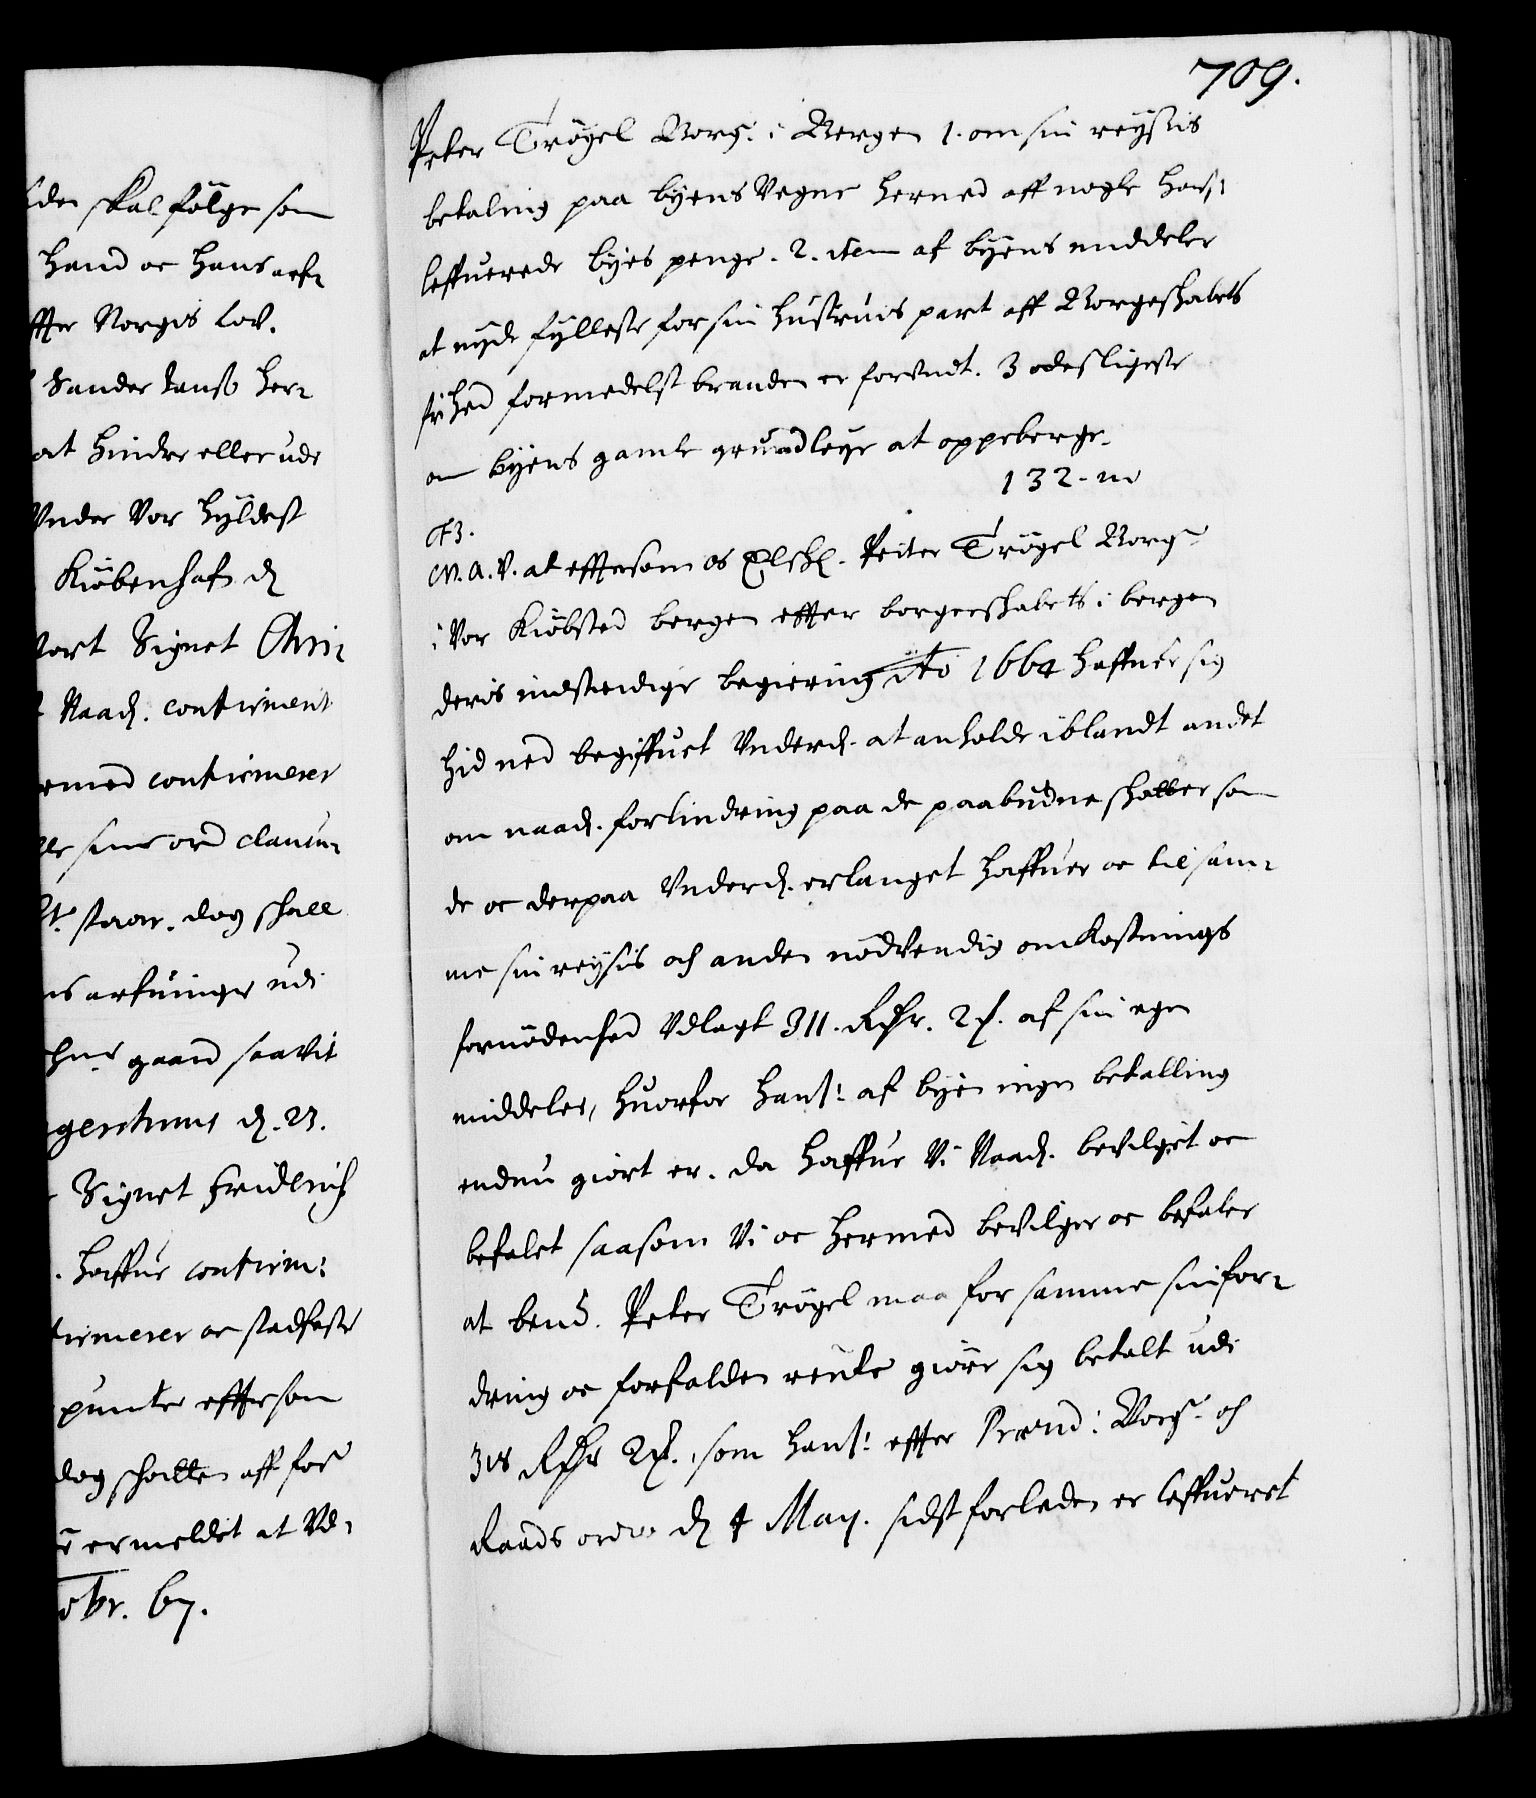 709.
Peter Trögel Borg: i Bergen 1. om sin reyses
betaling paa byens Vegne herned aff nogle hans:
leffuerede byes penge. 2. item af byens middeler
at nyde fylleste for sin hustruis part aff Borgerskabets
frihed formedelst branden er forundt. 3 odesligeste
om byens gamle grundleye at oppeberge.
132.
F3.
G.A.V. at effter som os Elskl. Peiter Trögel Borg:
i Vor Kiöbsted bergen effter borgerskabets i bergen
deris indstendige begiering Ao 1664 haffuer sig
hid ned begiffuet Underd. at anholde iblandt andet
om naad. forlindring paa de paabudne skatter som
de oc derpaa Underd. erlanget haffuer oc til sam-
me sin reyses och anden nödvendig omkostnings
fornödenhed Vdlagt 311. Rdr. 2 f. af sin egen
middeler, huorfor hans: af byen ingen betalling
endnu giort er. da haffue Vi Naad. bevilget oc
befalet saasom Vi oc hermed bevilger oc befaler
at bemt. Peter Trögel maa for samme sin for-
dring oc forfalden rente giöre sig betalt udi
318 Rdr 2 f. som hans: effter Præsid: Borg: och
Raads ordre d 4 May. sidst forleden er leffueret
den skal fölge som
hand oc hans arf-
ffter Norgis Lov.
Sander Lauss her-
at hindre eller ude
Vnder Vor hyldest
Kiöbenhafn d
Vort Signet Chri-
Naad. confirmerit
rmed confirmerer
lle sine ord clausu-
staar. dog skall
ns arfuinger udi
gaard saavit
gentinus d. 23.
Signet Friderich
haffue confirm:
firmerer oc stadfeste
puncter effter som
dog skatten aff for
ermeldet at Vd-
obr. 67.